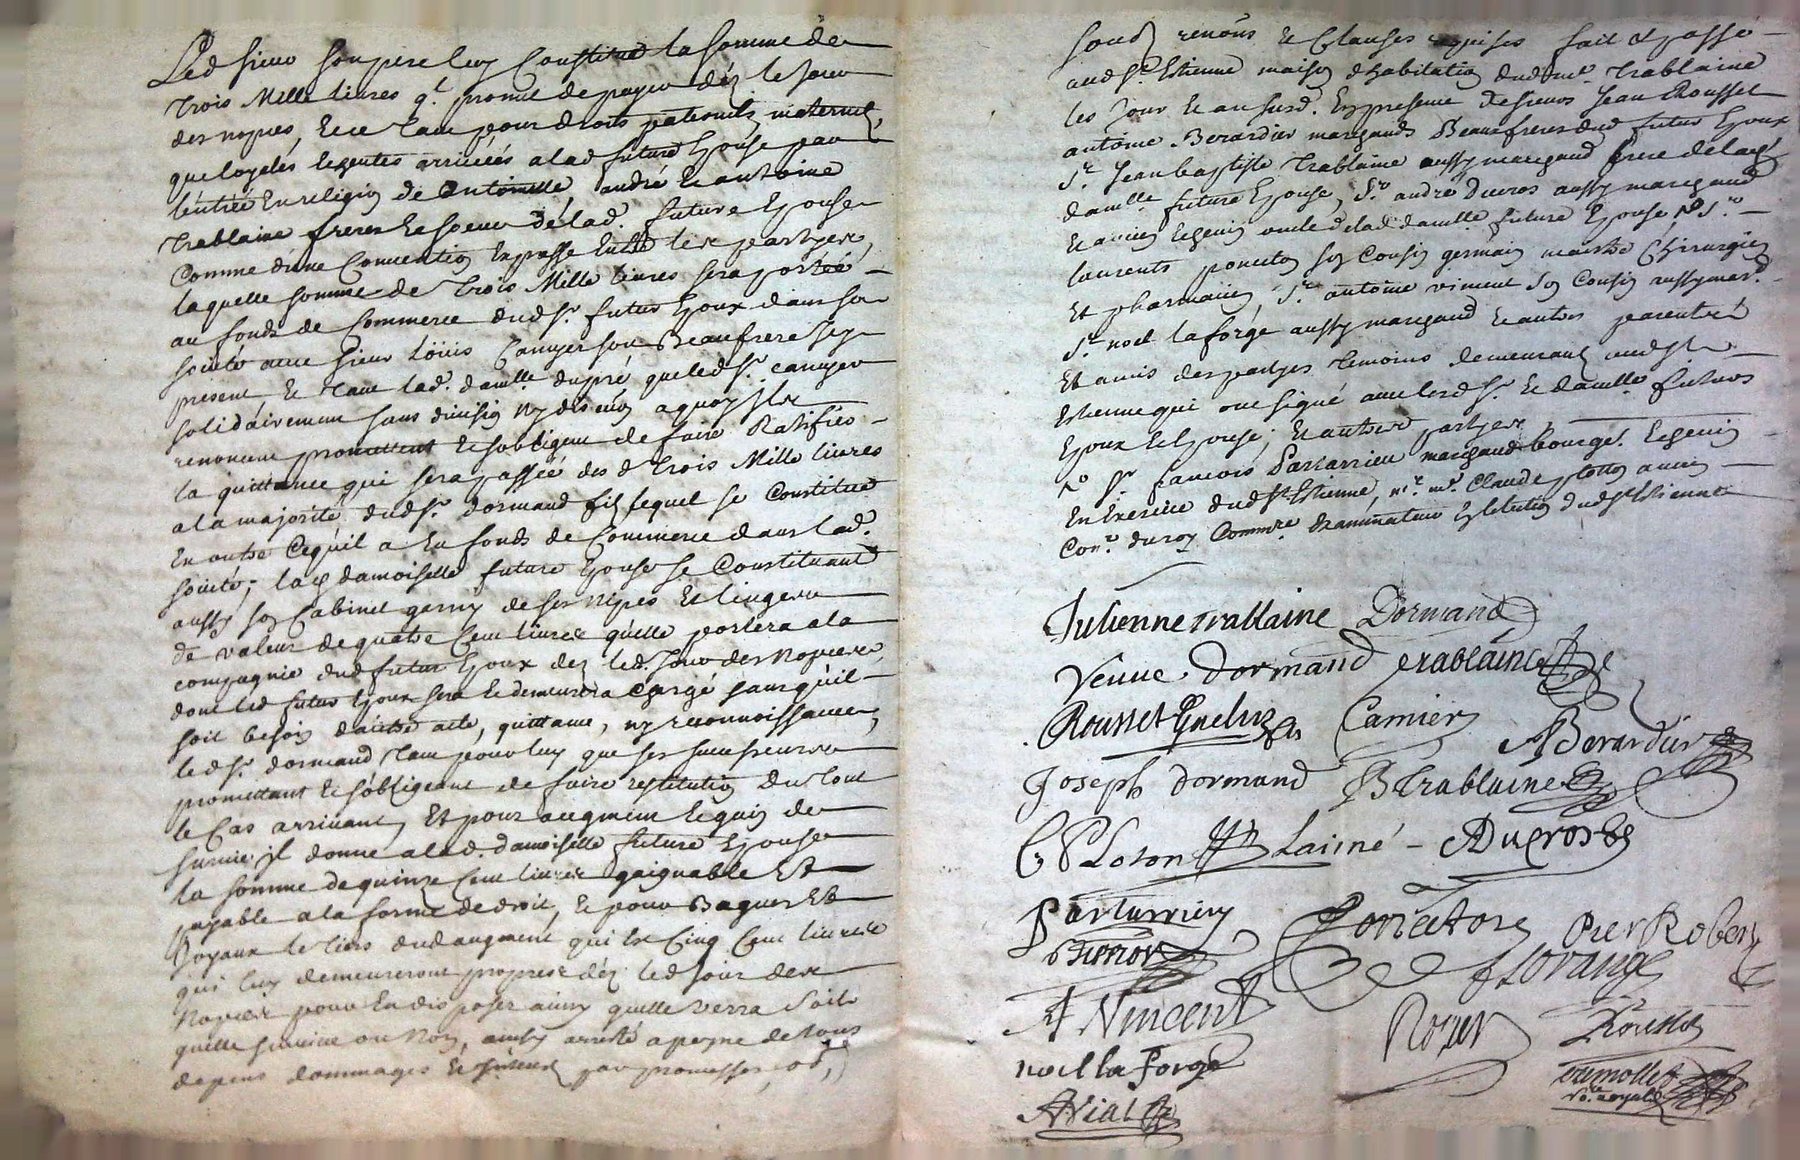 Led sieur son pere luy Constitue la somme de
trois Mille livres ql. promet de payer dez le jour
des nopces, Et ce tant pour droits paternels maternels,
que loyelés legentes arrivéés a lad future Epouse par
lentréé En religion de Antoinette, andré Et antoine
Trablaine freres Et soeur de lad. future Epouse
Comme dune Convention Expasse Entre les partyes,
laquelle somme de trois Mille livres sera portéé
au fonds de Commerce dud sr. futur Epoux dans sa
societe avec sieur Loüis Camyer son Beaufrere Icy
present Et tant lad. damlle. dupré que led sr. camyer
solidairement sans division ny discution a quoy Ils
renoncent promettent Et sobligent de faire Ratifier
la quittance qui sera passéé des d trois Mille livres
a la majorité dud sr. dormand fils lequel se Constitue
En outre Ce quil a En fonds de Commerce dans lad.
societe; la de damoiselle future Epouse se Constituant
aussy son Cabinet garny de ses nipes Et linges
de valeur de quatre Cent livres quelle portera a la
compagnie dud futur Epoux dez led. Jour des Nopces,
dont led futur Epoux sera Et demeurera chargé sans quil
soit besoin dautre acte, quittance, ny reconnoissance,
led sr. dormand tant pour luy que ses successeurs
promettant Et sobligeant de faire restitution du tout
le Cas arrivant, Et pour augment Et gain de
survie il donne a lad. damoiselle future Epouse
la somme de quinze Cent livres gaignable Et
payable a la forme de droit, Et pour Bagues Et
Joyaux le tiers dud augment qui Est Cinq Cent livres
qui luy demeureront propres dez led jour des
Nopces pour En disposer ainsy quelle verra Soit
quelle survive ou Non, ainsy arresté a peyne de tous
depens dommages Et interets par promesses,
soud renons Et Clauses requises fait Et passé
aud St. Estienne maison dhabitation dud sieur Trablaine
les Jour Et an susd. En presence de sieurs Jean Rousset
antoine Berardier marchands Beaufreres dud futur Epoux
Sr. Jean baptiste Trablaine aussy marchand frere de lad
damlle. future Epouse, Sr. andré Ducros aussy marchand
Et ancien Echevin oncle de lad damlle. future Epouse No Sr.
laurents ponceton son Cousin germain maistre Chirurgien
Et pharmacien, Sr. antoine vincent son Cousin aussy mard.
Sr. noel laforge aussy marchand Et autres parents
Et amis des partyes temoins demeurants aud St.
Estienne qui ont signé avec lesd sr. Et damlle. futurs
Epoux Et Epouse, Et autres partyes
No Sr. francois Partarrieu marchand bourgs. Echevin
En Exercice dud St Estienne, Mr. me. Claude ploton ancien
Conr. du roy Commre. Examinateur En lelection dud St Estienne
Julienne trablaine Dormand
Veuve Dormand trablaine
Rousset Camier
ABerardier
Joseph dormand JB trablaine
C. Ploton Lainné ADucros
Partarrieu Poncetone Pier Robert
florange
A Vincent Royer Rousset
noel la Forge
AVial
tremollet
No. royal